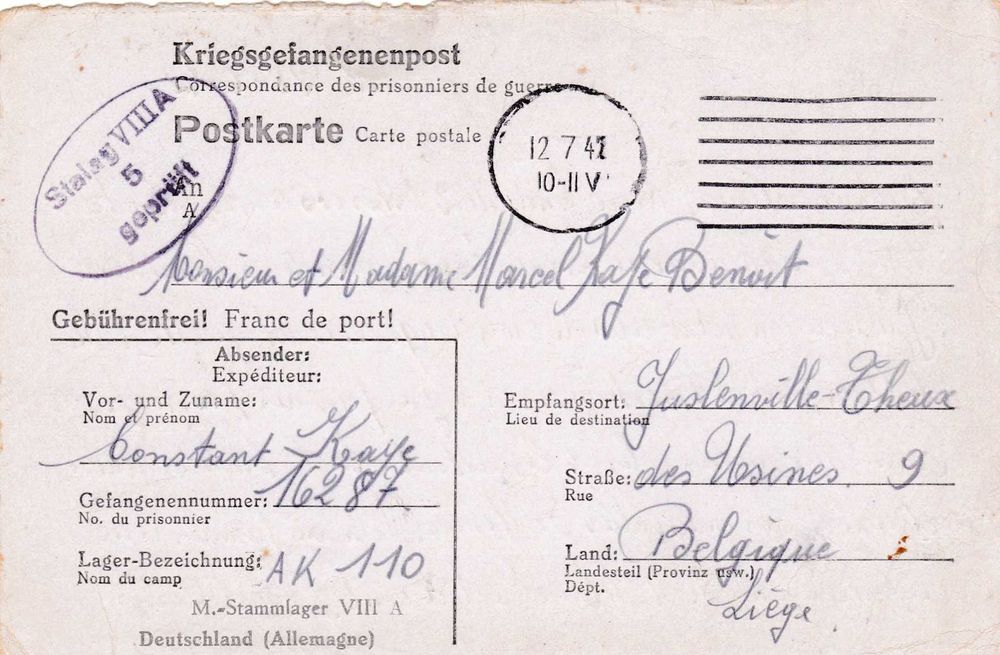 Kriegsgefangenenpost
Correspondance des prisonniers de guerre
Postkarte Carte postale
Stalag VIII A
5
geprüft
12.7.41
10-11 V
An
A
Monsieur et Madame Marcel Kaye Benoit
Gebührenfrei! Franc de port!
Absender:
Expéditeur:
Vor- und Zuname:
Nom et prénom
Constant Kaye
Gefangenennummer: 16287
No. du prisonnier
Lager-Bezeichnung: AK 110
Nom du camp
M.-Stammlager VIII A
Deutschland (Allemagne)
Empfangsort: Juslenville-Theux
Lieu de destination
Straße: des Usines. 9
Rue
Land: Belgique
Landesteil (Provinz usw.)
Dépt.
Liège